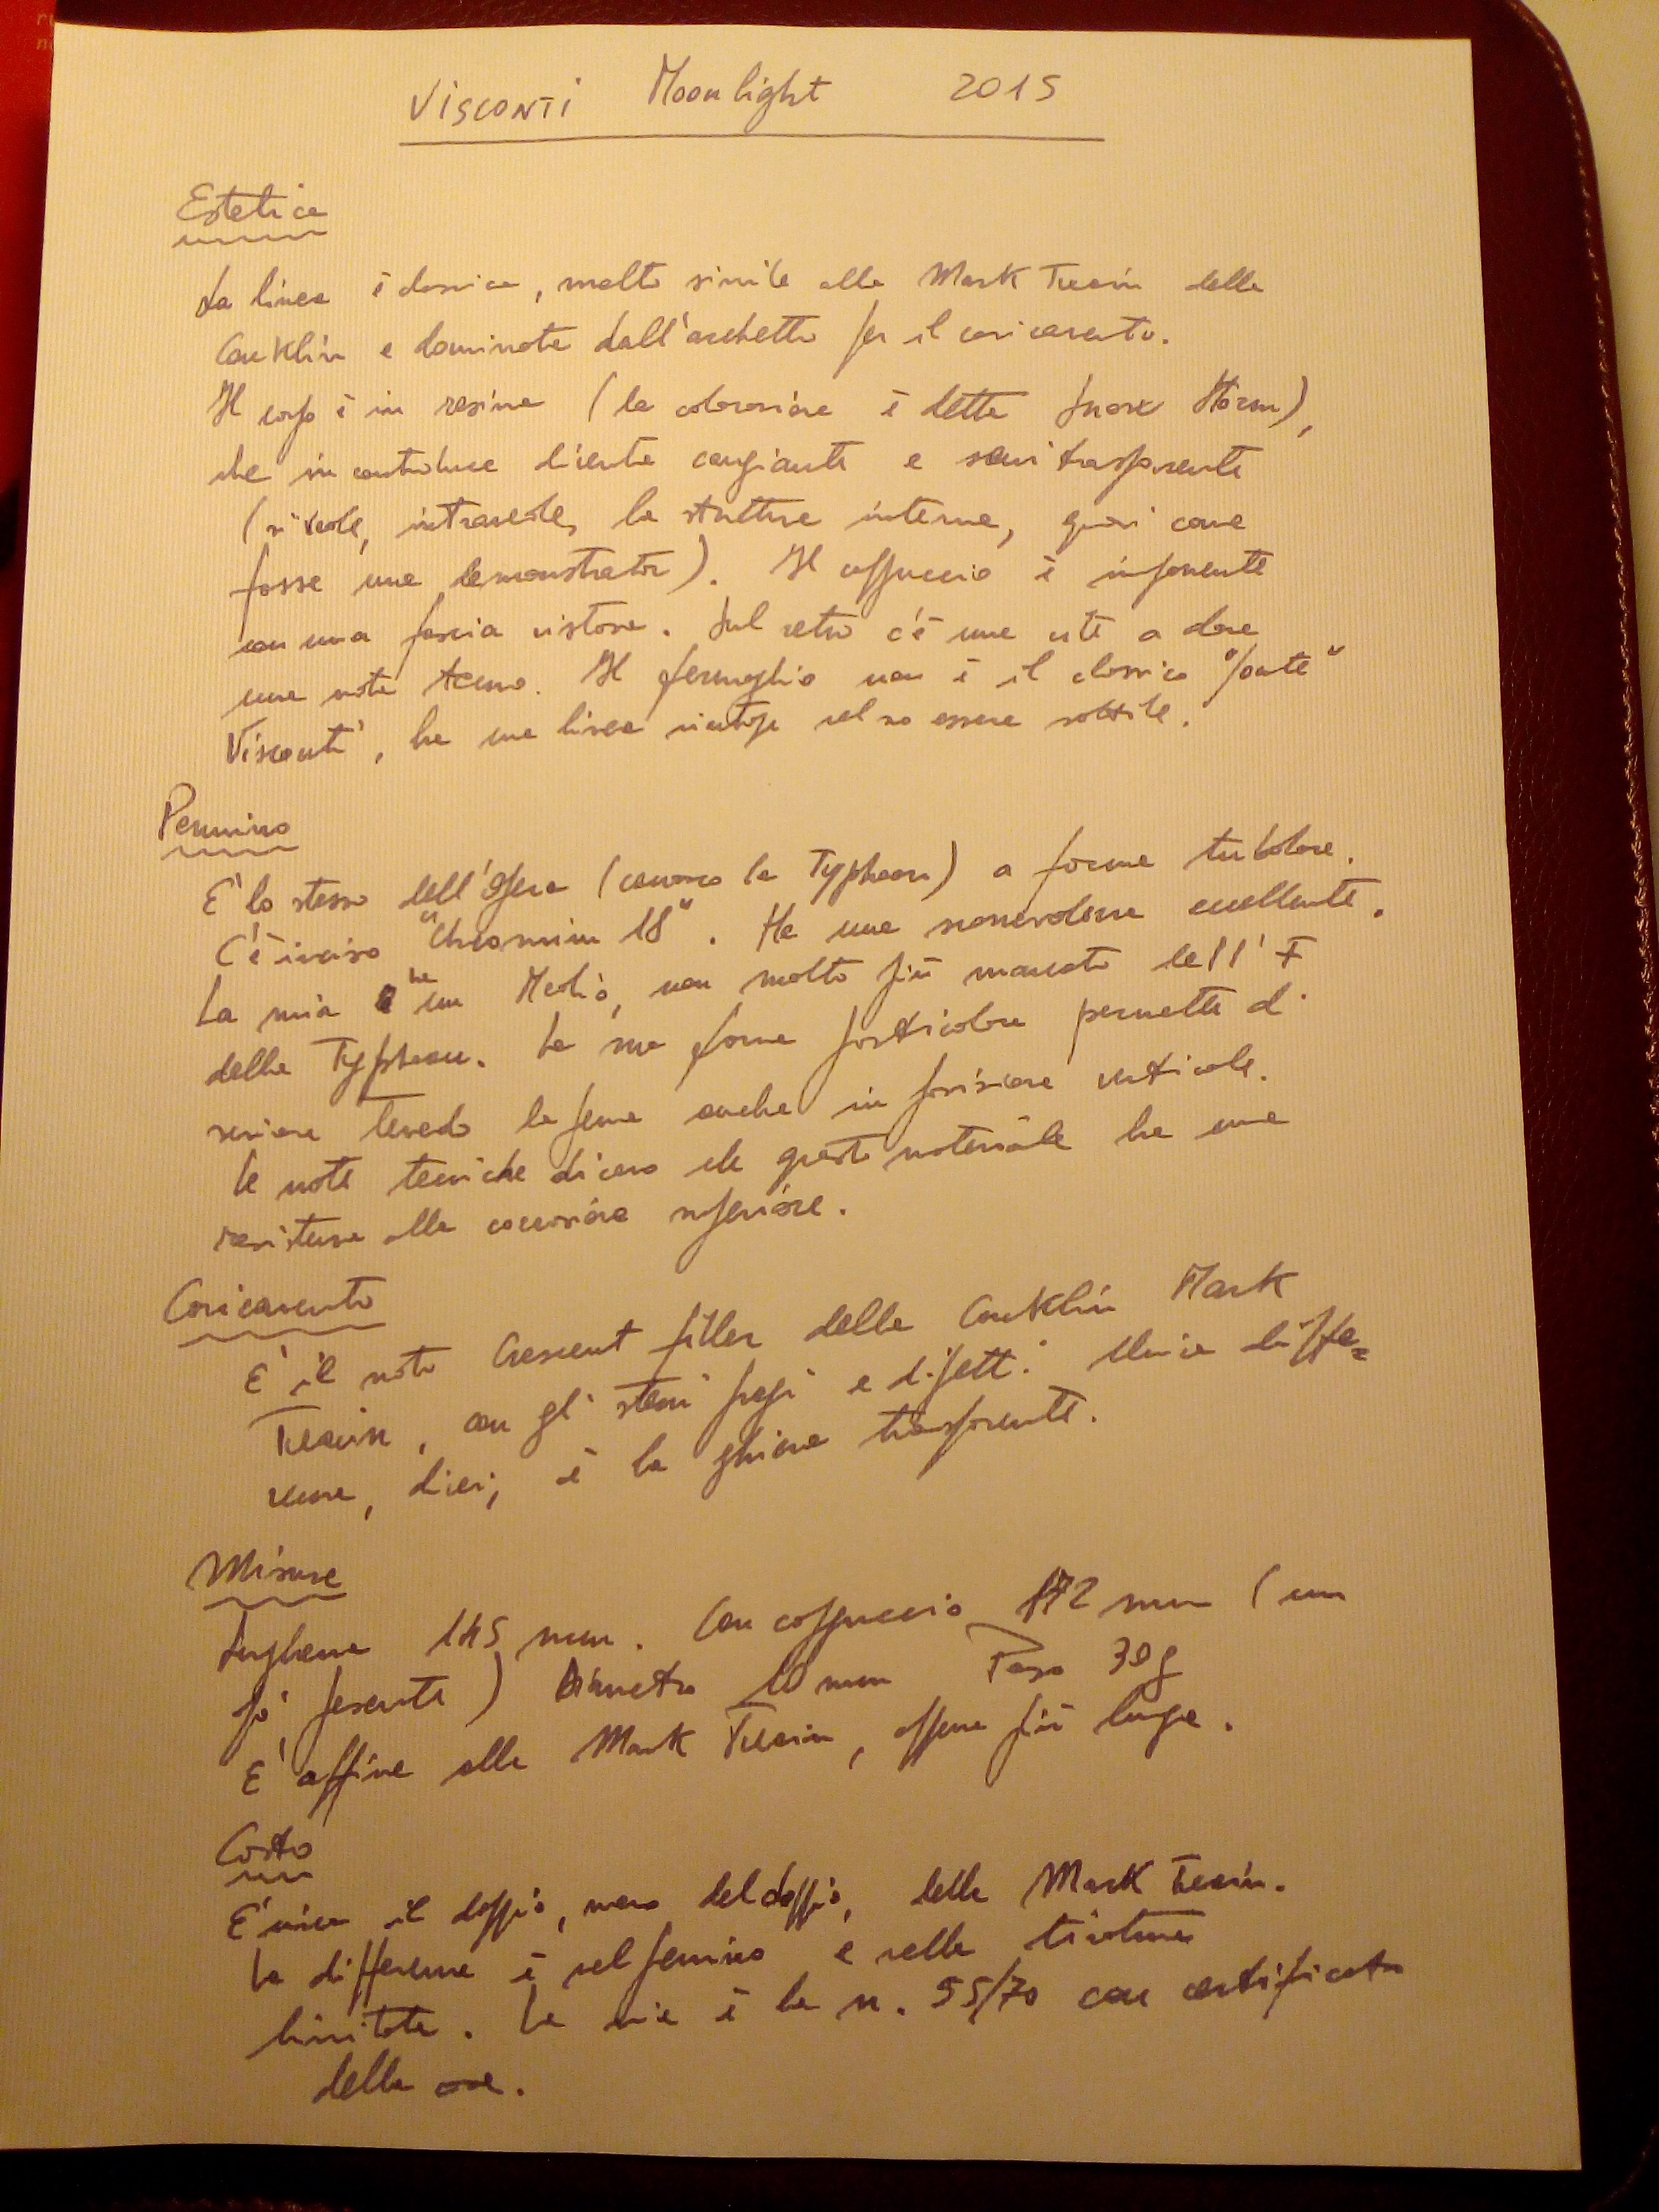 VISCONTI Moonlight 2015
Estetica
La linea è classica, molto simile alla Mark Twain della
Conklin e dominata dall'archetto per il caricamento.
Il corpo è in resina (la colorazione è detta Snow Storm),
che in controluce diventa cangiante e semitrasparente
(si vede, intravede, la struttura interna, quasi come
fosse una demonstrator). Il cappuccio è imponente
con una fascia vistosa. Sul retro c'è una vite a dare
una nota tecno. Il fermaglio non è il classico "ponte"
Visconti, ha una linea vintage nel suo essere sottile.
Pennino
E' lo stesso dell'Opera (conosco la Typhoon) a forma tubolare.
C'è inciso "Chromium 18". Ha una scorrevolezza eccellente.
La mia ha un Medio, non molto più marcato dell'F
della Typhoon. La sua forma particolare permette di
scrivere tenendo la penna anche in posizione verticale.
Le note tecniche dicono che questo materiale ha una
resistenza alla corrosione superiore.
Caricamento
E' il noto Crescent filler della Conklin Mark
Twain, con gli stessi pregi e difetti. Unica diffe=
renza, direi, è la ghiera trasparente.
Misure
Lunghezza 145 mm. Con cappuccio 172 mm (un
po' pesante) Diametro 10 mm Peso 30 g
E' affine alla Mark Twain, appena più lunga.
Costo
E' circa il doppio, meno del doppio, della Mark Twain.
La differenza è nel pennino e nella tiratura
limitata. La mia è la n. 55/70 con certificato
della